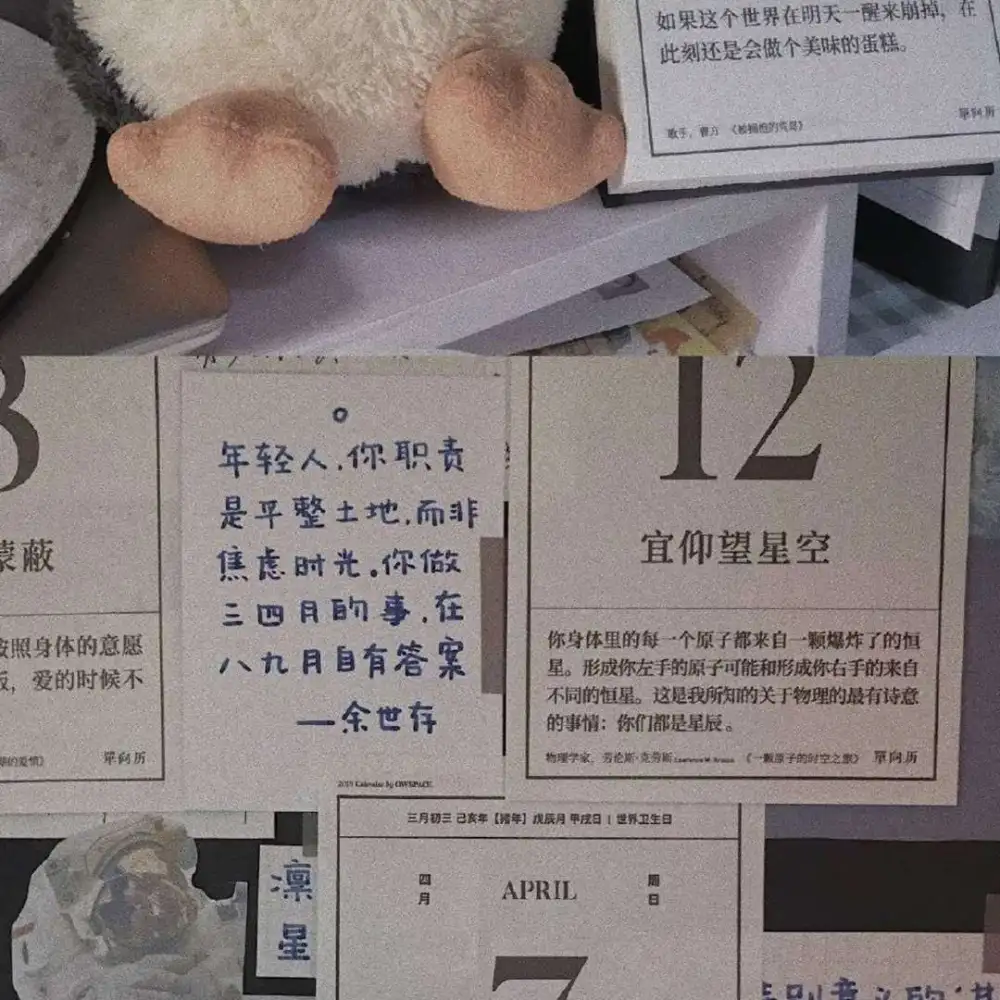 如果这个世界在明天一醒来崩掉，在
此刻还是会做个美味的蛋糕。
單向历
歌手，曹方 《被拥抱的荒岛》
蒙蔽
按照身体的意愿
爱的时候不
單向历
年轻人,你职责
是平整土地,而非
焦虑时光。你做
三四月的事,在
八九月自有答案
—余世存
2019 Calendar by OWSPACE
12
宜仰望星空
你身体里的每一个原子都来自一颗爆炸了的恒
星。形成你左手的原子可能和形成你右手的来自
不同的恒星。这是我所知的关于物理的最有诗意
的事情：你们都是星辰。
物理学家，劳伦斯·克劳斯 Lawrence M. Krauss 《一颗原子的时空之旅》 單向历
三月初三 己亥年【猪年】戊辰月 甲戌日 | 世界卫生日
四月 APRIL 周日
7
凛
星
别意义的